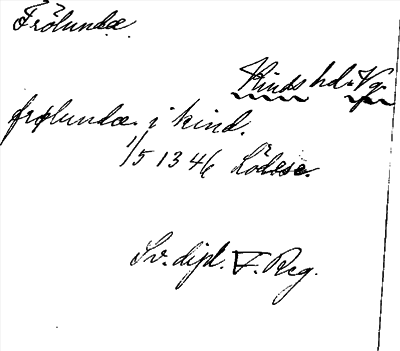 Frölunda
Kinds hd. Vg.
frølundæ i kind.
1/5 1346 Lödese.
Sv. dipl. F. Reg.